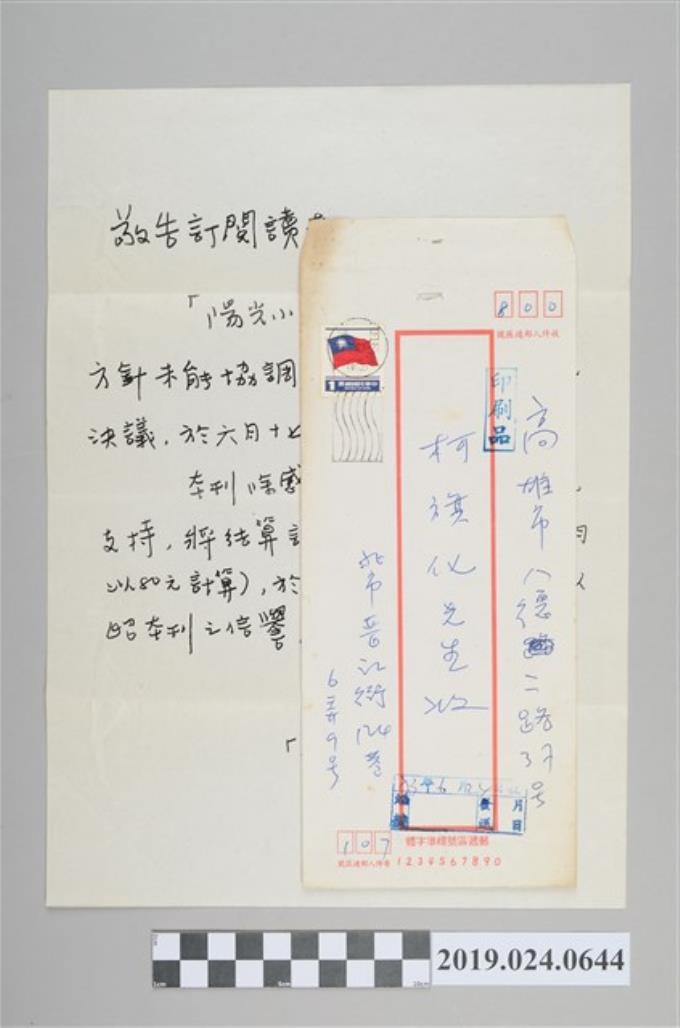 敬告訂閱讀
「陽光小
方針未能協調
決議，於六月十七
本刊除感
支持，將結算
以80元計算），於
昭本刊之信譽
「
800
收件人郵遞區號
印刷品
高雄市八德二路37号
柯旗化先生 收
北市晋江街124巷
6弄9号
1
107
寄件人郵遞區號
郵遞區號標準字體
1234567890
2019.024.0644